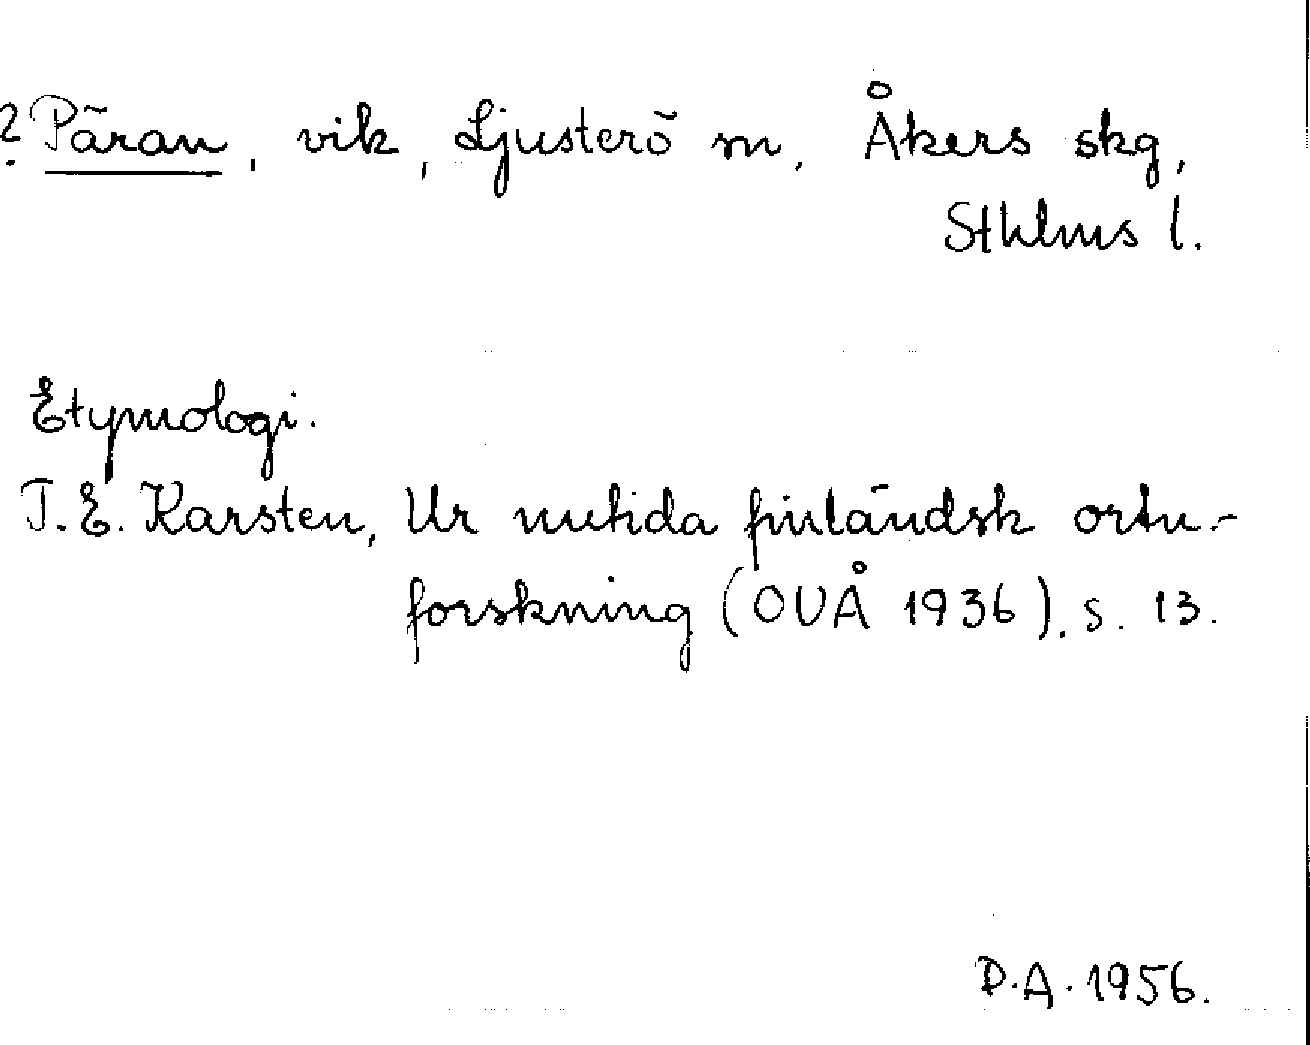 ? Päran, vik, Ljusterö sn, Åkers skg,
Sthlms l.
Etymologi.
T.E. Karsten, Ur nutida finländsk ortn.-
forskning (OUÅ 1936), s. 13.
D.A. 1956.